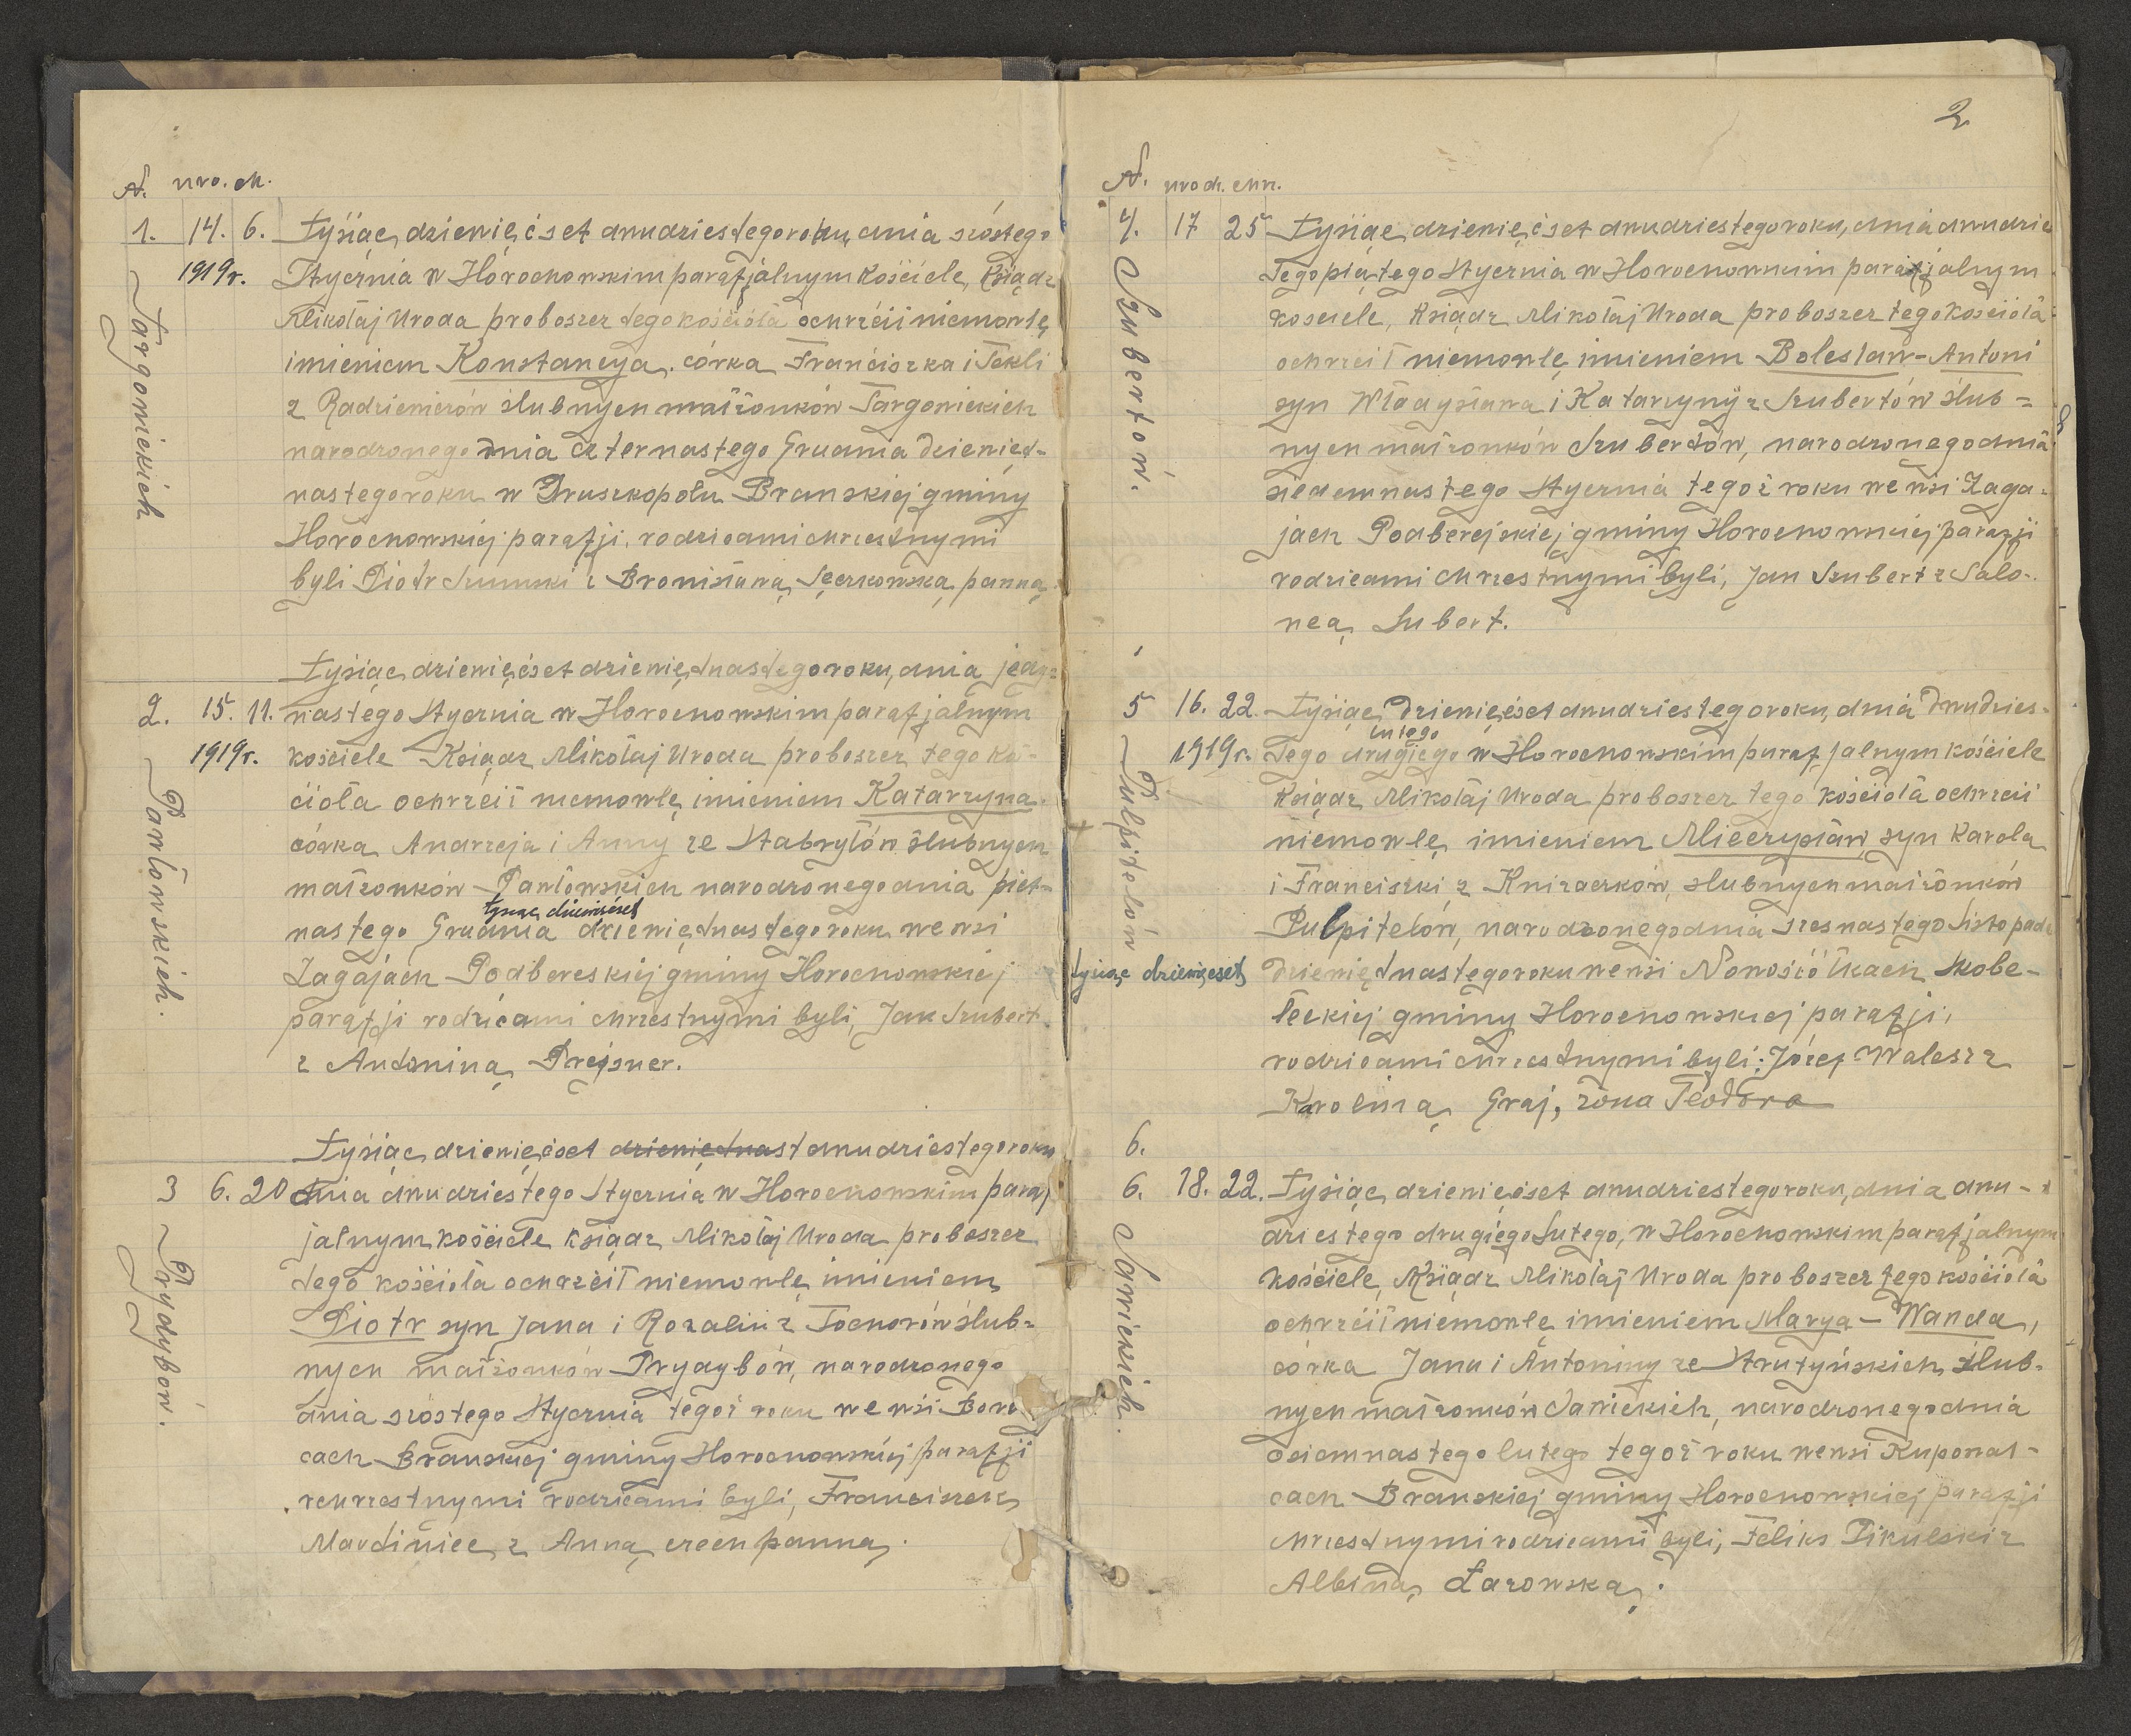 N. uro. ch.
1. 14. 6. Tysiąc dziewięćset dwudziestego roku, dnia szóstego
1919r. Stycznia w Horochowskim parafjalnym Kościele, Ksiądz
Mikołaj Uroda proboszcz tego kościoła ochrzcił niemowlę
imieniem Konstancya. córka Franciszka i Tekli
z Radziewiczów ślubnych małżonków Targonickich
Targonickich
narodzonego dnia czternastego Grudnia dziewięt-
nastego roku w Druszkopolu Branskiej gminy
Horochowskiej parafji. rodzicami chrzestnymi
byli Piotr Szumski z Bronisławą panną
Tysiąc dziewięćset dziewiętnastego roku, dnia jede-
2. 15. 11. nastego Stycznia w Horochowskim parafjalnym
1919r. kościele Ksiądz Mikołaj Uroda proboszcz tego ko-
cioła ochrzcił niemowlę imieniem Katarzyna.
Pawłowskich.
córka Andrzeja i Anny ze Stabryłów ślubnych
małżonków Pawłowskich narodzonego dnia piet-
tysiąc dziewięćset
nastego Grudnia dziewiętnastego roku we wsi
Zagajach Podbereskiej gminy Horochowskiej
parafji rodzicami chrzestnymi byli, Jan Szubert
z Antoniną Prejsner.
Tysiąc dziewięćset dziewiętnast dwudziestego roku
3 6. 20 dnia dwudziestego Stycznia w Horochowskim paraf
jalnym kościele ksiądz Mikołaj Uroda proboszcz
tego kościoła ochrzcił niemowlę imieniem
Prydybów.
Piotr syn Jana i Rozalii z Tochorów ślub-
nych małżonków Prydybów, narodzonego
dnia szóstego Stycznia tegoż roku we wsi
cach Branskiej gminy Horochowskiej parafji
chrzestnymi rodzicami byli, Franciszek
z Anną panną.
2
N. urodz. chrz.
4. 17 25 Tysiąc dziewięćset dwudziestego roku, dnia dwudzie
tego piątego Stycznia w Horochowskim parafjalnym
kosciele, Ksiądz Mikołaj Uroda proboszcz tego kościoła
Szubertów.
ochrzcił niemowlę imieniem Bolesław-Antoni
syn Władysława i Katarzyny z Szubertów ślub-
nych małżonków Szubertów, narodzonego dnia
siedemnastego Stycznia tegoż roku we wsi Zaga-
jach Podberejskiej gminy Horochowskiej parafji
rodzicami chrzestnymi byli, Jan Szubert z Salo-
neą Subert.
5 16. 22. Tysiąc Dziewięćset dwudziestego roku, dnia Dwudzies-
lutego
1919r. tego drugiego w Horochowskim parafjalnym kościele
Ksiądz Mikołaj Uroda proboszcz tego kościoła ochrzcił
niemowlę imieniem Mieczysław syn Karola
Pulpitelów
i Franciszki z Knizaczków, ślubnych małżonków
Pulpitelów, narodzonego dnia szesnastego Listopada
tysiąc dziewięćset dziewiętnastego roku we wsi Nowosiółkach Skobe-
łeckiej gminy Horochowskiej parafji,
rodzicami chrzestnymi byli: Józef Walesz z
Karoliną Graj, żona Teodora
6.
6. 18. 22. Tysiąc dziewięćset dwudziestego roku, dnia dwu-
dziestego drugiego Lutego, w Horochowskim parafjalnym
kościele, Ksiądz Mikołaj Uroda proboszcz tego kościoła
Sawickich.
ochrzcił niemowlę imieniem Marya – Wanda,
córka Jana i Antoniny ze Strutyńskich, ślub-
nych małżonków Sawickich, narodzonego dnia
osiemnastego lutego tegoż roku we wsi Kupowal-
cach Branskiej gminy Horochowskiej parafji
chrzestnymi rodzicami byli, Feliks Pikulski z
Albiną Łazowską.